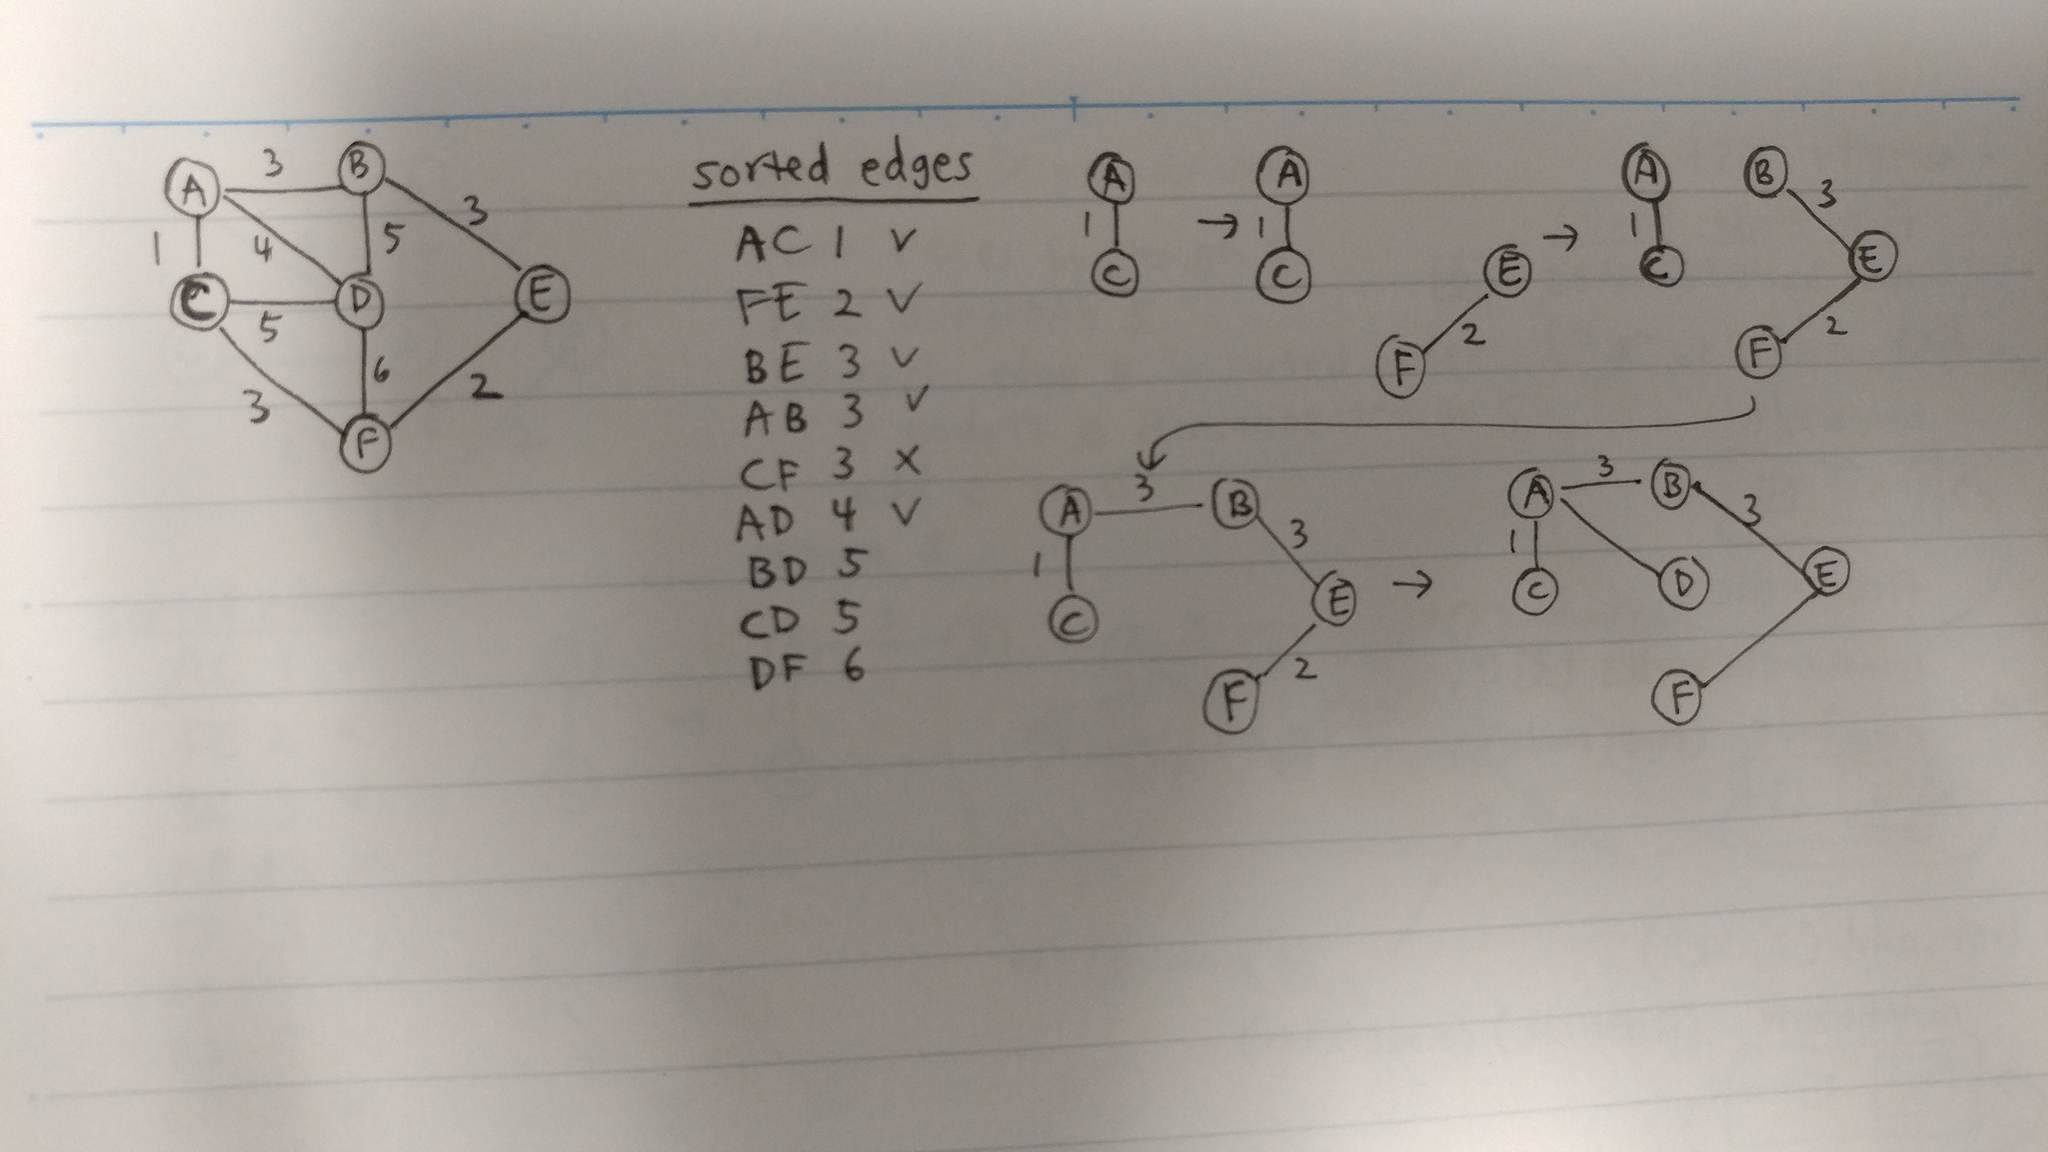 A
3
B
3
1
4
5
C
5
D
E
6
3
2
F
sorted edges
AC 1 v
FE 2 v
BE 3 v
AB 3 v
CF 3 x
AD 4 v
BD 5
CD 5
DF 6
A
1
C
→
A
1
C
E
2
F
→
A
1
C
B
3
E
2
F
A
3
B
1
3
C
E
2
F
→
A
3
B
1
3
C
D
E
F